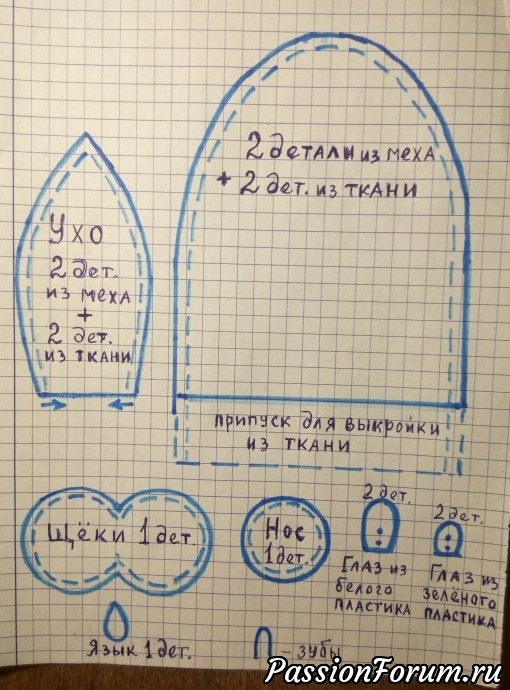 2 детали из меха
+ 2 дет. из ткани
Ухо
2 дет.
из меха
+
2 дет.
из ткани
припуск для выкройки
из ткани
Щёки 1 дет.
Нос
1 дет.
2 дет.
Глаз из
белого
пластика
2 дет.
Глаз из
зелёного
пластика
Язык 1 дет.
- зубы
PassionForum.ru